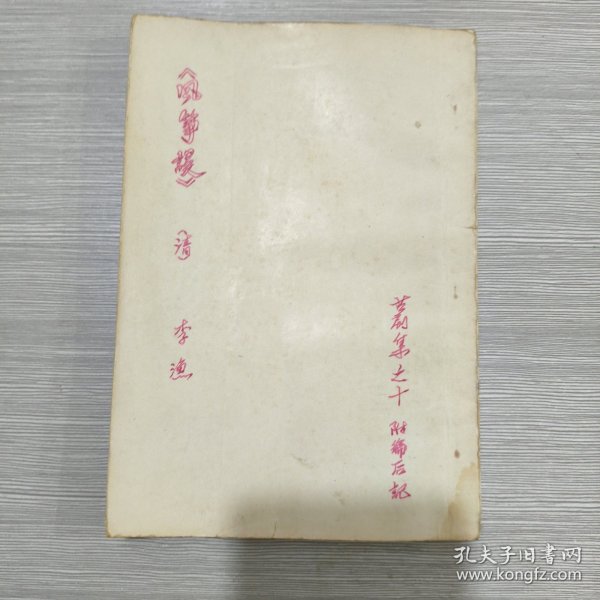 《风筝误》 (清) 李渔
集之十 附编后记
孔夫子旧书网
www.kongfz.com